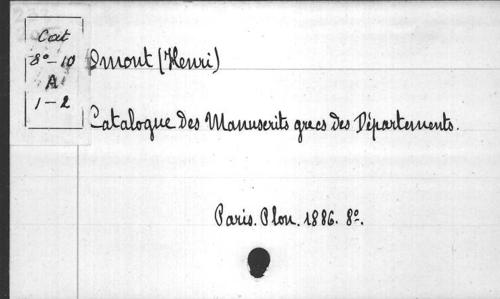 Cat
8º-10
A
1-2
Omont (Henri)
Catalogue des Manuscrits grecs des Départements.
Paris. Plon. 1886. 8º.